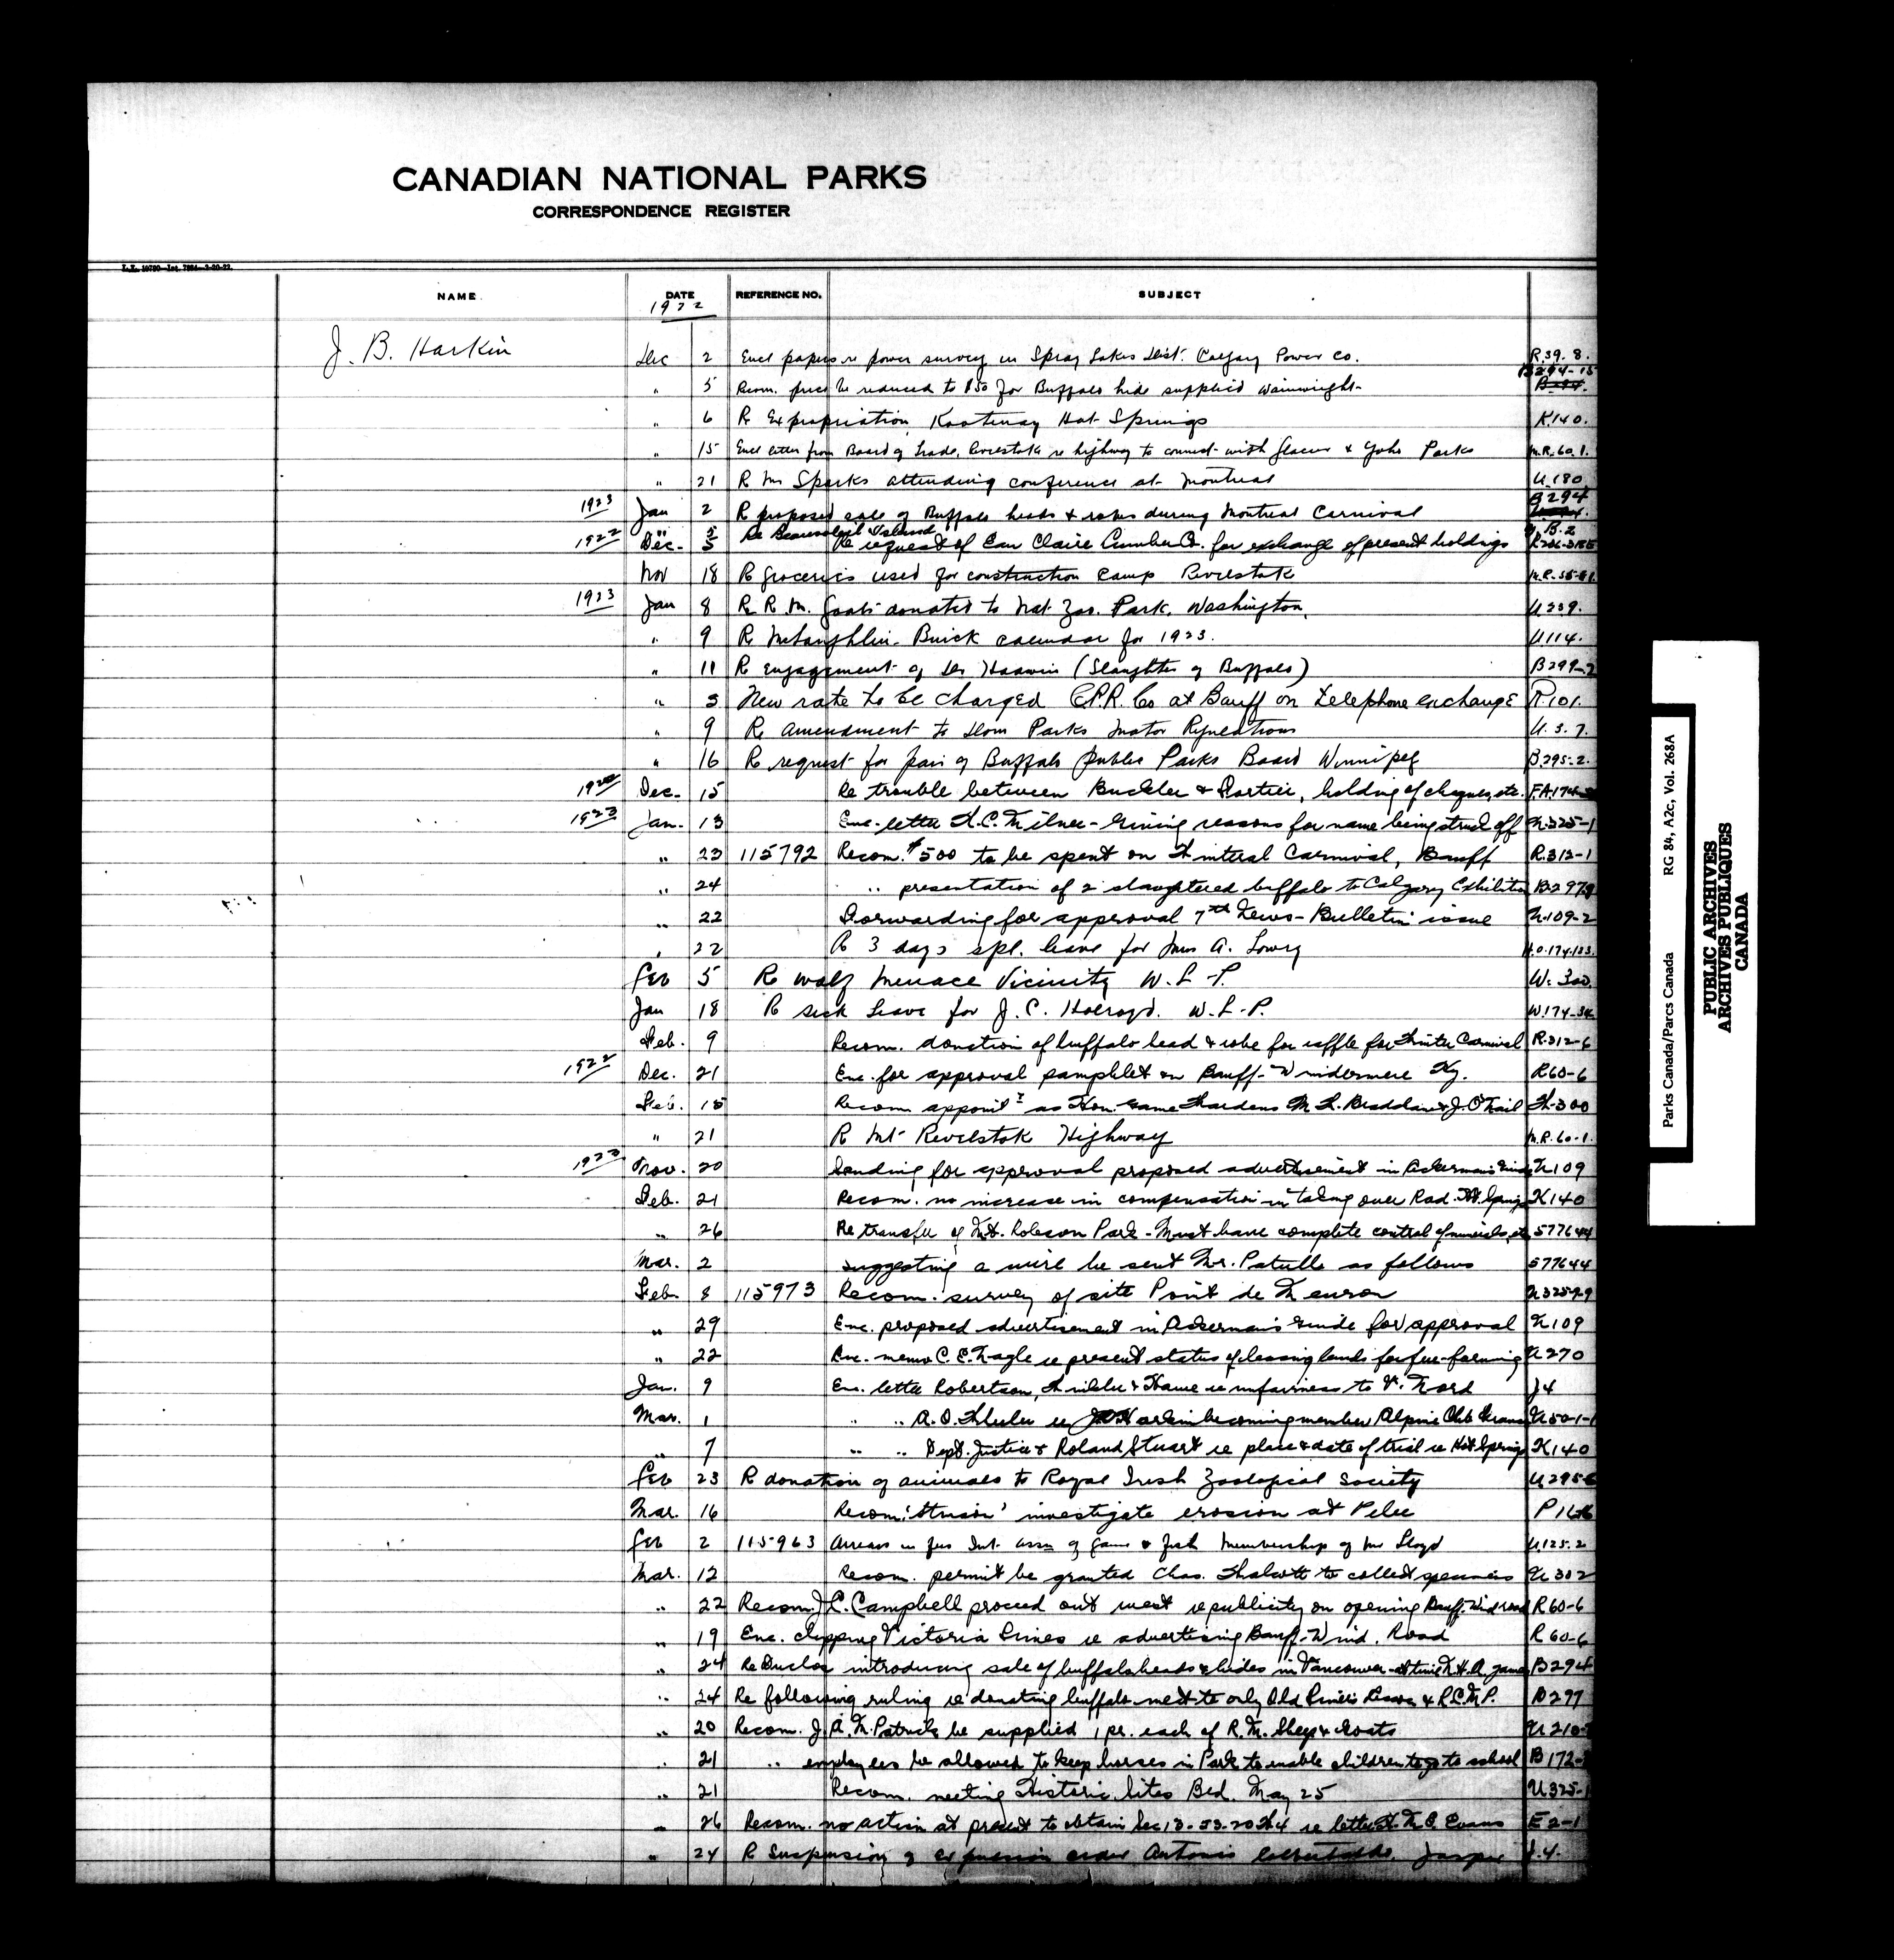 CANADIAN NATIONAL PARKS
CORRESPONDENCE REGISTER
NAME DATE REFERENCE NO. SUBJECT
1922
J. B. Harkin Dec 2 Encl papers re power survey in Spray Lakes Dist. Calgary Power Co. R.39.8.
" 5 Recom. price be reduced to $50 for Buffalo hide supplied Wainwright B294-15
" 6 R Expropriation Kootenay Hot Springs K140.
" 15 Encl letter from Board of Trade, Revelstoke re highway to connect with Glacier & Yoho Parks M.R.60.1.
" 21 R Mr Sparks attending conference at Montreal U.180.
1923 Jan 2 R proposed sale of Buffalo heads & robes during Montreal Carnival B294
" 5 Re Beausoleil Island B.2
1922 Dec. 5 Re request of Eau Claire Lumber Co. for exchange of present holdings
Nov 18 R Groceries used for construction camp Revelstoke
1923 Jan 8 R R.M. Goats donated to Nat. Zoo. Park, Washington. U.239.
" 9 R McLaughlin Buick calendar for 1923. U114.
" 11 R Engagement of Dr (Slaughter of Buffalo) B299-2
" 3 New rate to be charged C.P.R. Co at Banff on telephone exchange R.101.
" 9 R Amendment to Dom Parks Motor Regulations U.3.7.
" 16 R request for pair of Buffalo public Parks Board Winnipeg B.295-2.
1922 Dec. 15 Re trouble between Buckler & holding of cheques, etc. F.A.174
1923 Jan. 13 Enc. letter giving reasons for name being struck off U.325-1
" 23 115792 Recom. $500 to be spent on Winter Carnival, Banff R.313-1
" 24 " presentation of 2 slaughtered buffalo to Calgary Exhibition B297
" 22 Forwarding for approval 7th News-Bulletin issue U.109-2
" 22 R 3 days spl. leave for Miss A. Lowry H.O.174.123.
Feb 5 R wolf menace Vicinity W.L.P. W.300.
Jan 18 R sick leave for J.C. Holroyd. W.L.P. W.174-34
Feb. 9 Recom. donation of buffalo head & robe for raffle for Winter Carnival R.312-6
1922 Dec. 21 Enc. for approval pamphlet on Banff-Windermere Hy. R60-6
Feb. 15 Recom appoint as Hon. Game Wardens W-300
" 21 R Mt Revelstoke Highway M.R.60-1.
1922 Nov. 20 Sending for approval proposed advertisement in Ackerman's Guide U109
Feb. 21 Recom. no increase in compensation in taking over Rad. Hot Springs K140
" 26 Re transfer of Mt. Robson Park - Must have complete control of minerals, etc 577644
Mar. 2 Suggesting a wire be sent Mr. Patullo as follows 577644
Feb. 8 115973 Recom. survey of site Point de Meuron
" 29 Enc. proposed advertisement in Ackerman's Guide for approval U109
" 22 Enc. memo C.E. Nagle re present status of leasing lands for fur-farming U270
Jan. 9 Enc. letter Robertson, & re unfairness to V. J4
Mar. 1 " " A.O. Wheeler re J.B. Harkin becoming member Alpine Club U50-1-1
" 7 " " Dept. Justice & Roland Stuart re place & date of trial re Hot Springs K140
Feb 23 R donation of animals to Royal Irish Zoological Society U.295-6
Mar. 16 Recom. investigate erosion at Pelee
Feb 2 115963 Arrears in fees Int. Assn of Game & Fish Membership of Mr Lloyd U.125.2
Mar. 12 Recom. permit be granted Chas. to collect specimens U302
" 22 Recom. J.C. Campbell proceed out west re publicity on opening Banff-Wind road R60-6
" 19 Enc. clipping Victoria Times re advertising Banff-Wind. Road R60-6
" 24 Re introducing sale of buffalo heads & hides in Vancouver B294
" 24 Re following ruling re donating buffalo meat to only & R.C.M.P. B297
" 20 Recom. be supplied 1 pr. each of R.M. Sheep & Goats
" 21 " employees be allowed to keep horses in Park to enable children to go to school
" 21 Recom. meeting Historic Sites Bd. May 25 U325-1
" 26 Recom. no action at present to obtain re letter Evans E2-1
" 24 R Suspension of expulsion order Antonio Jasper J.4.
Parks Canada/Parcs Canada RG 84, A2c, Vol. 268A
PUBLIC ARCHIVES
ARCHIVES PUBLIQUES
CANADA